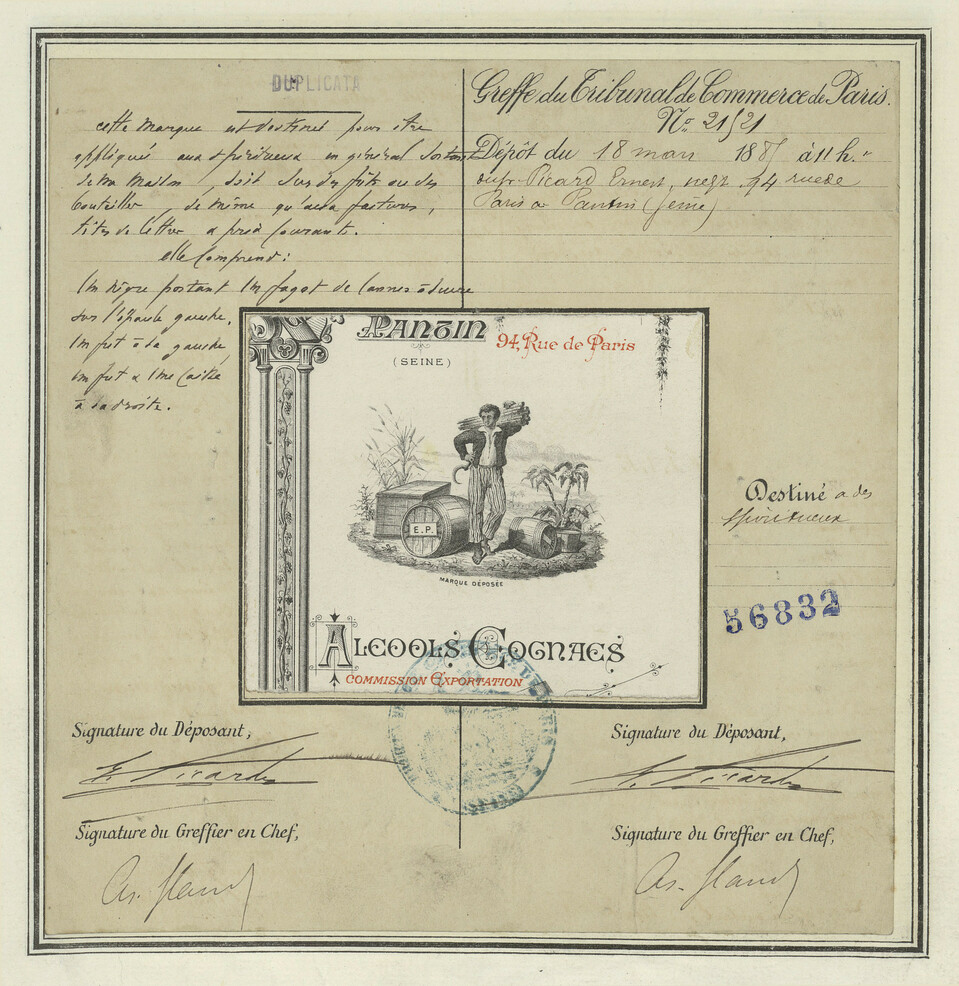 DUPLICATA
cette Marque est destinée pour être
appliquée aux spiritueux en général sortant
de ma Maison, soit sur des fûts ou des
bouteilles, de même qu'aux factures,
têtes de lettre & prix courants.
elle comprend:
Un nègre portant un fagot de cannes à sucre
sur l'épaule gauche,
Un fut à la gauche,
Un fut & une caisse
à la droite.
Greffe du Tribunal de Commerce de Paris.
No. 21521
Dépôt du 18 mars 188 à 11 h.
Picard Ernest, negt, 94 rue de
Paris a Pantin (Seine)
PANTIN
(SEINE)
94, Rue de Paris
E.P.
MARQUE DÉPOSÉE
ALCOOLS COGNACS
COMMISSION EXPORTATION
Destiné a des
spiritueux
56832
Signature du Déposant,
E. Picard
Signature du Greffier en Chef,
Signature du Déposant,
E. Picard
Signature du Greffier en Chef,